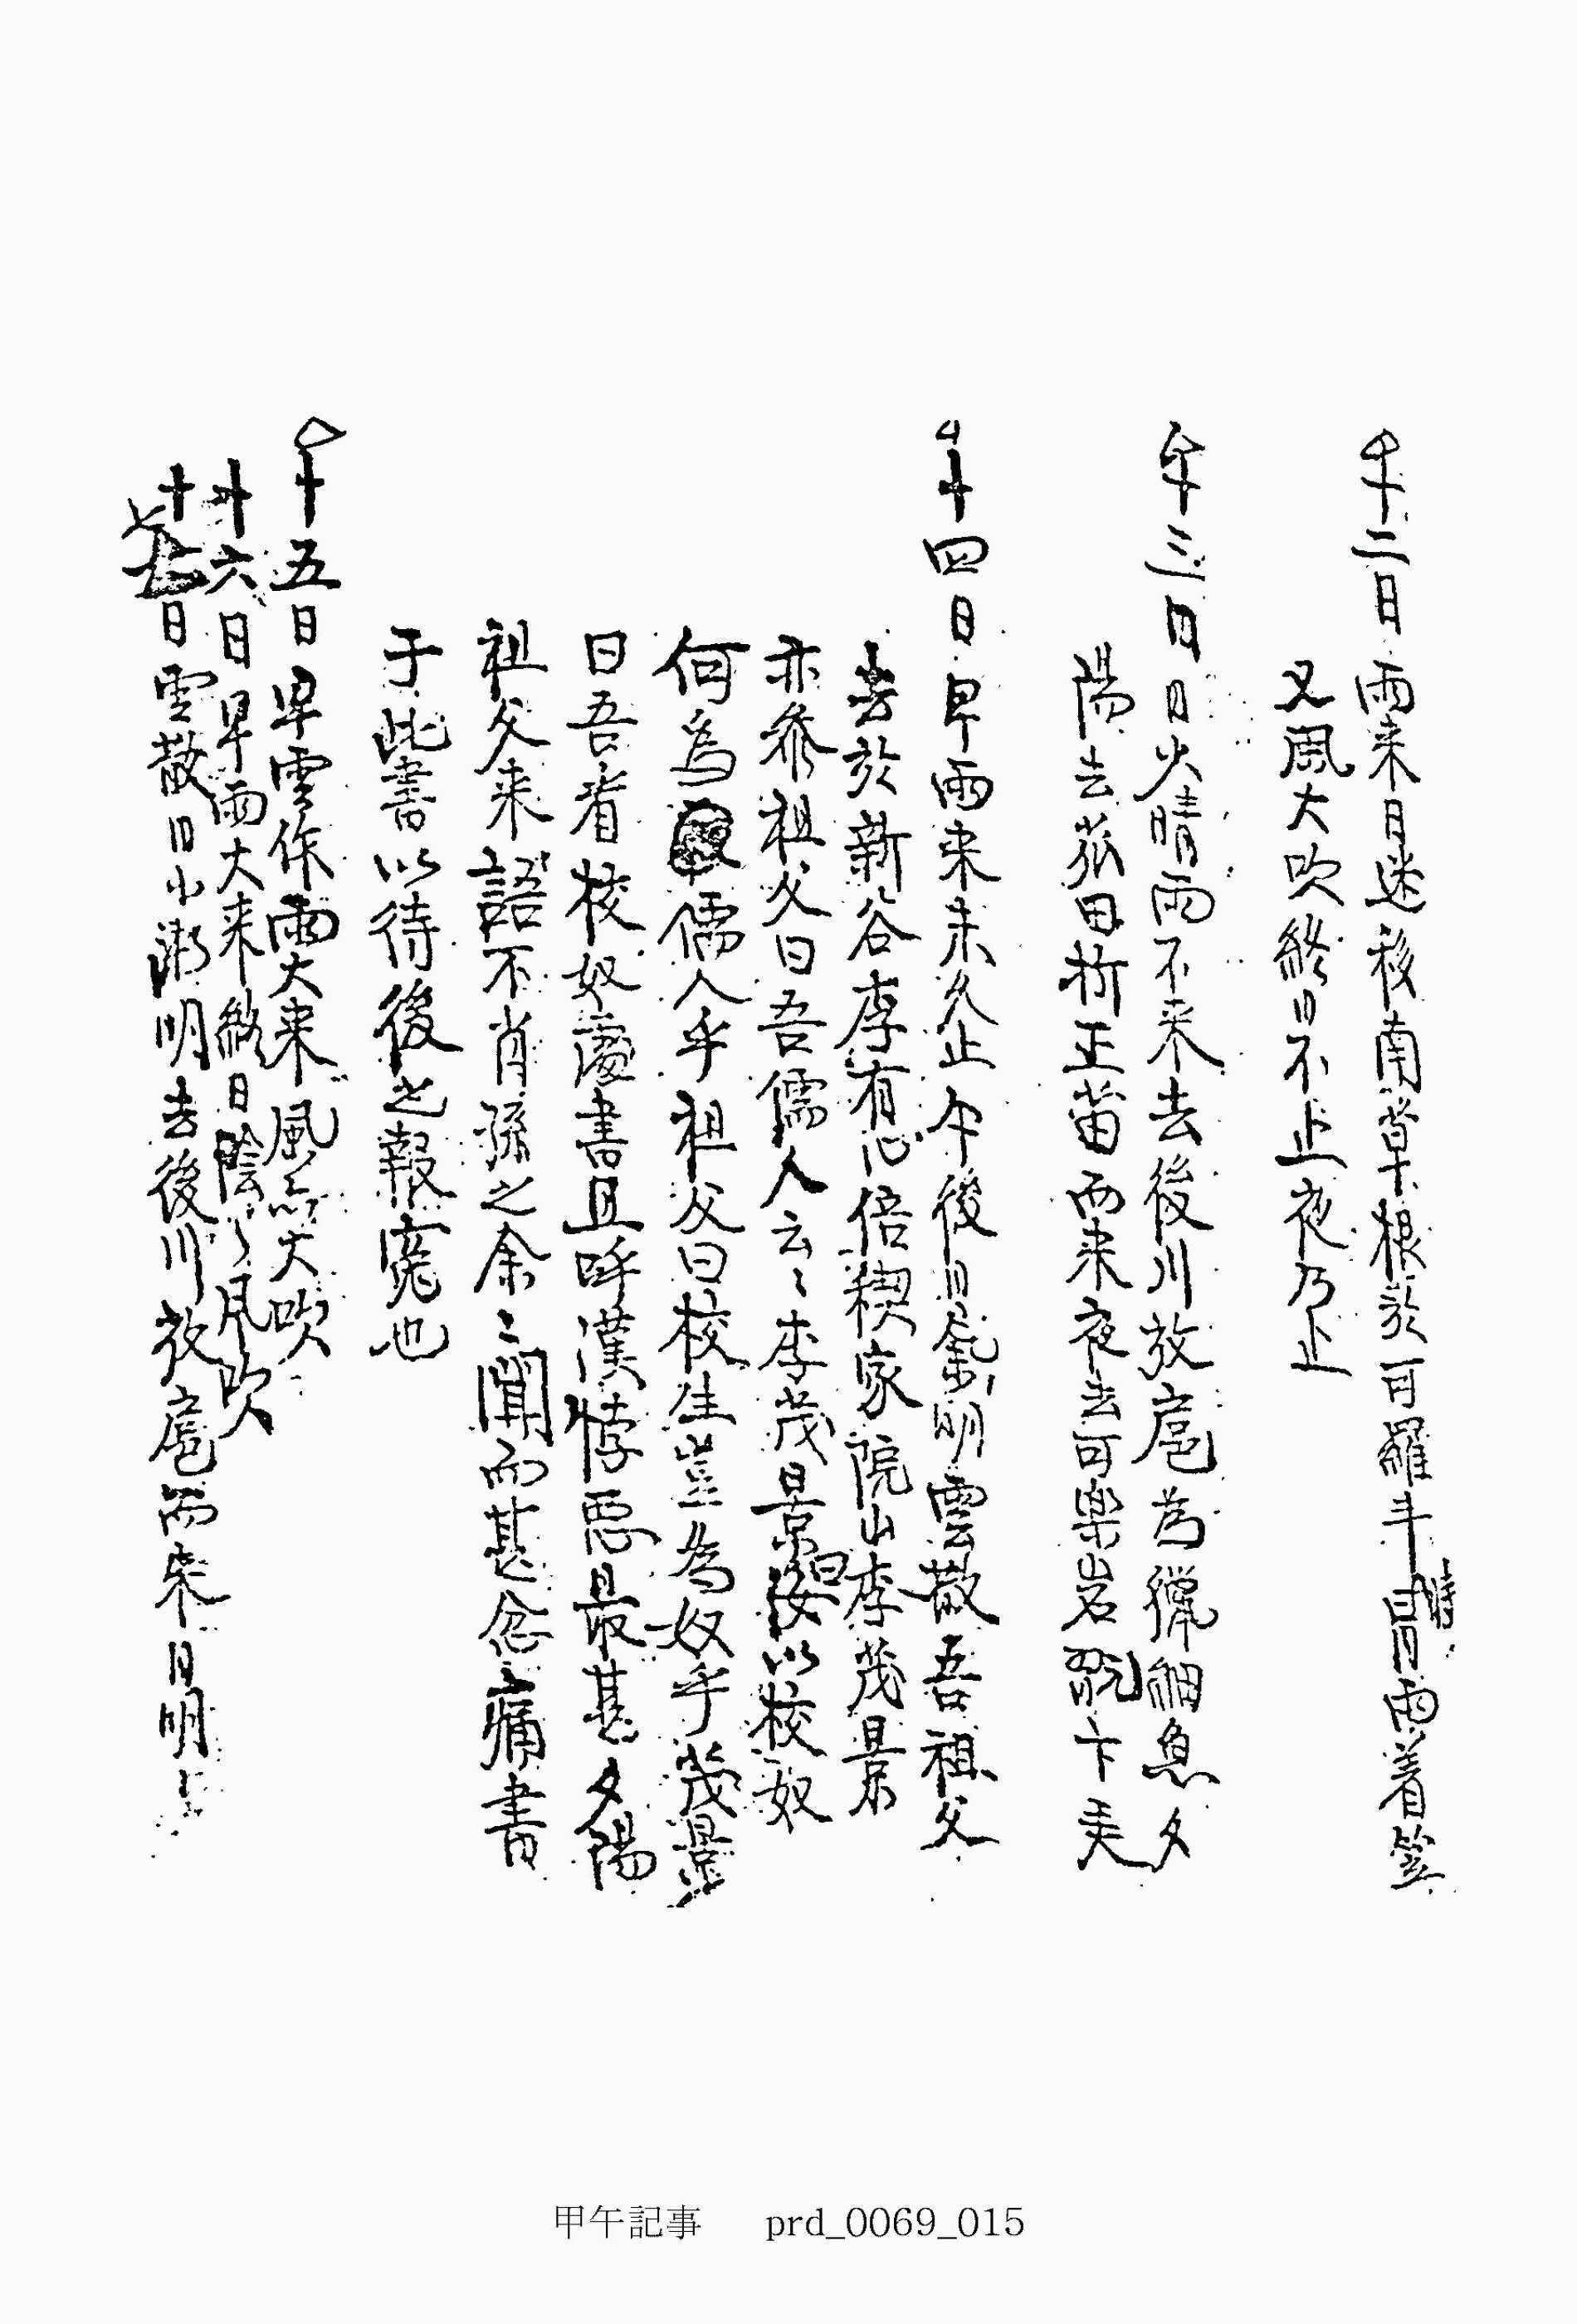 十二日 雨来日送移南草根於可羅斗時冒雨着笠
又風大吹終日不止夜乃止
十三日 日火晴雨不来去後川放扈為獵細魚夕
陽去苽田折正苗而来夜去可樂岩翫卞
十四日 早雨来未久止午後日氣明雲散吾祖父
去於新谷李有心倍稧家院山李茂景
亦參祖父曰吾儒人云〻李茂景曰汝以校奴
何為儒人乎祖父曰校生豈為奴乎茂景
曰吾看校奴讀書且呼漢悖惡最甚夕陽
祖父来語不肖孫之余〻聞而甚忿痛書
于此書以待後之報寃也
十五日 早雲作雨大来風亦大吹
十六日 早雨大来終日陰〻風吹
十七日 雲散日小淅明去後川放扈而来日明〻
甲午記事 prd_0069_015